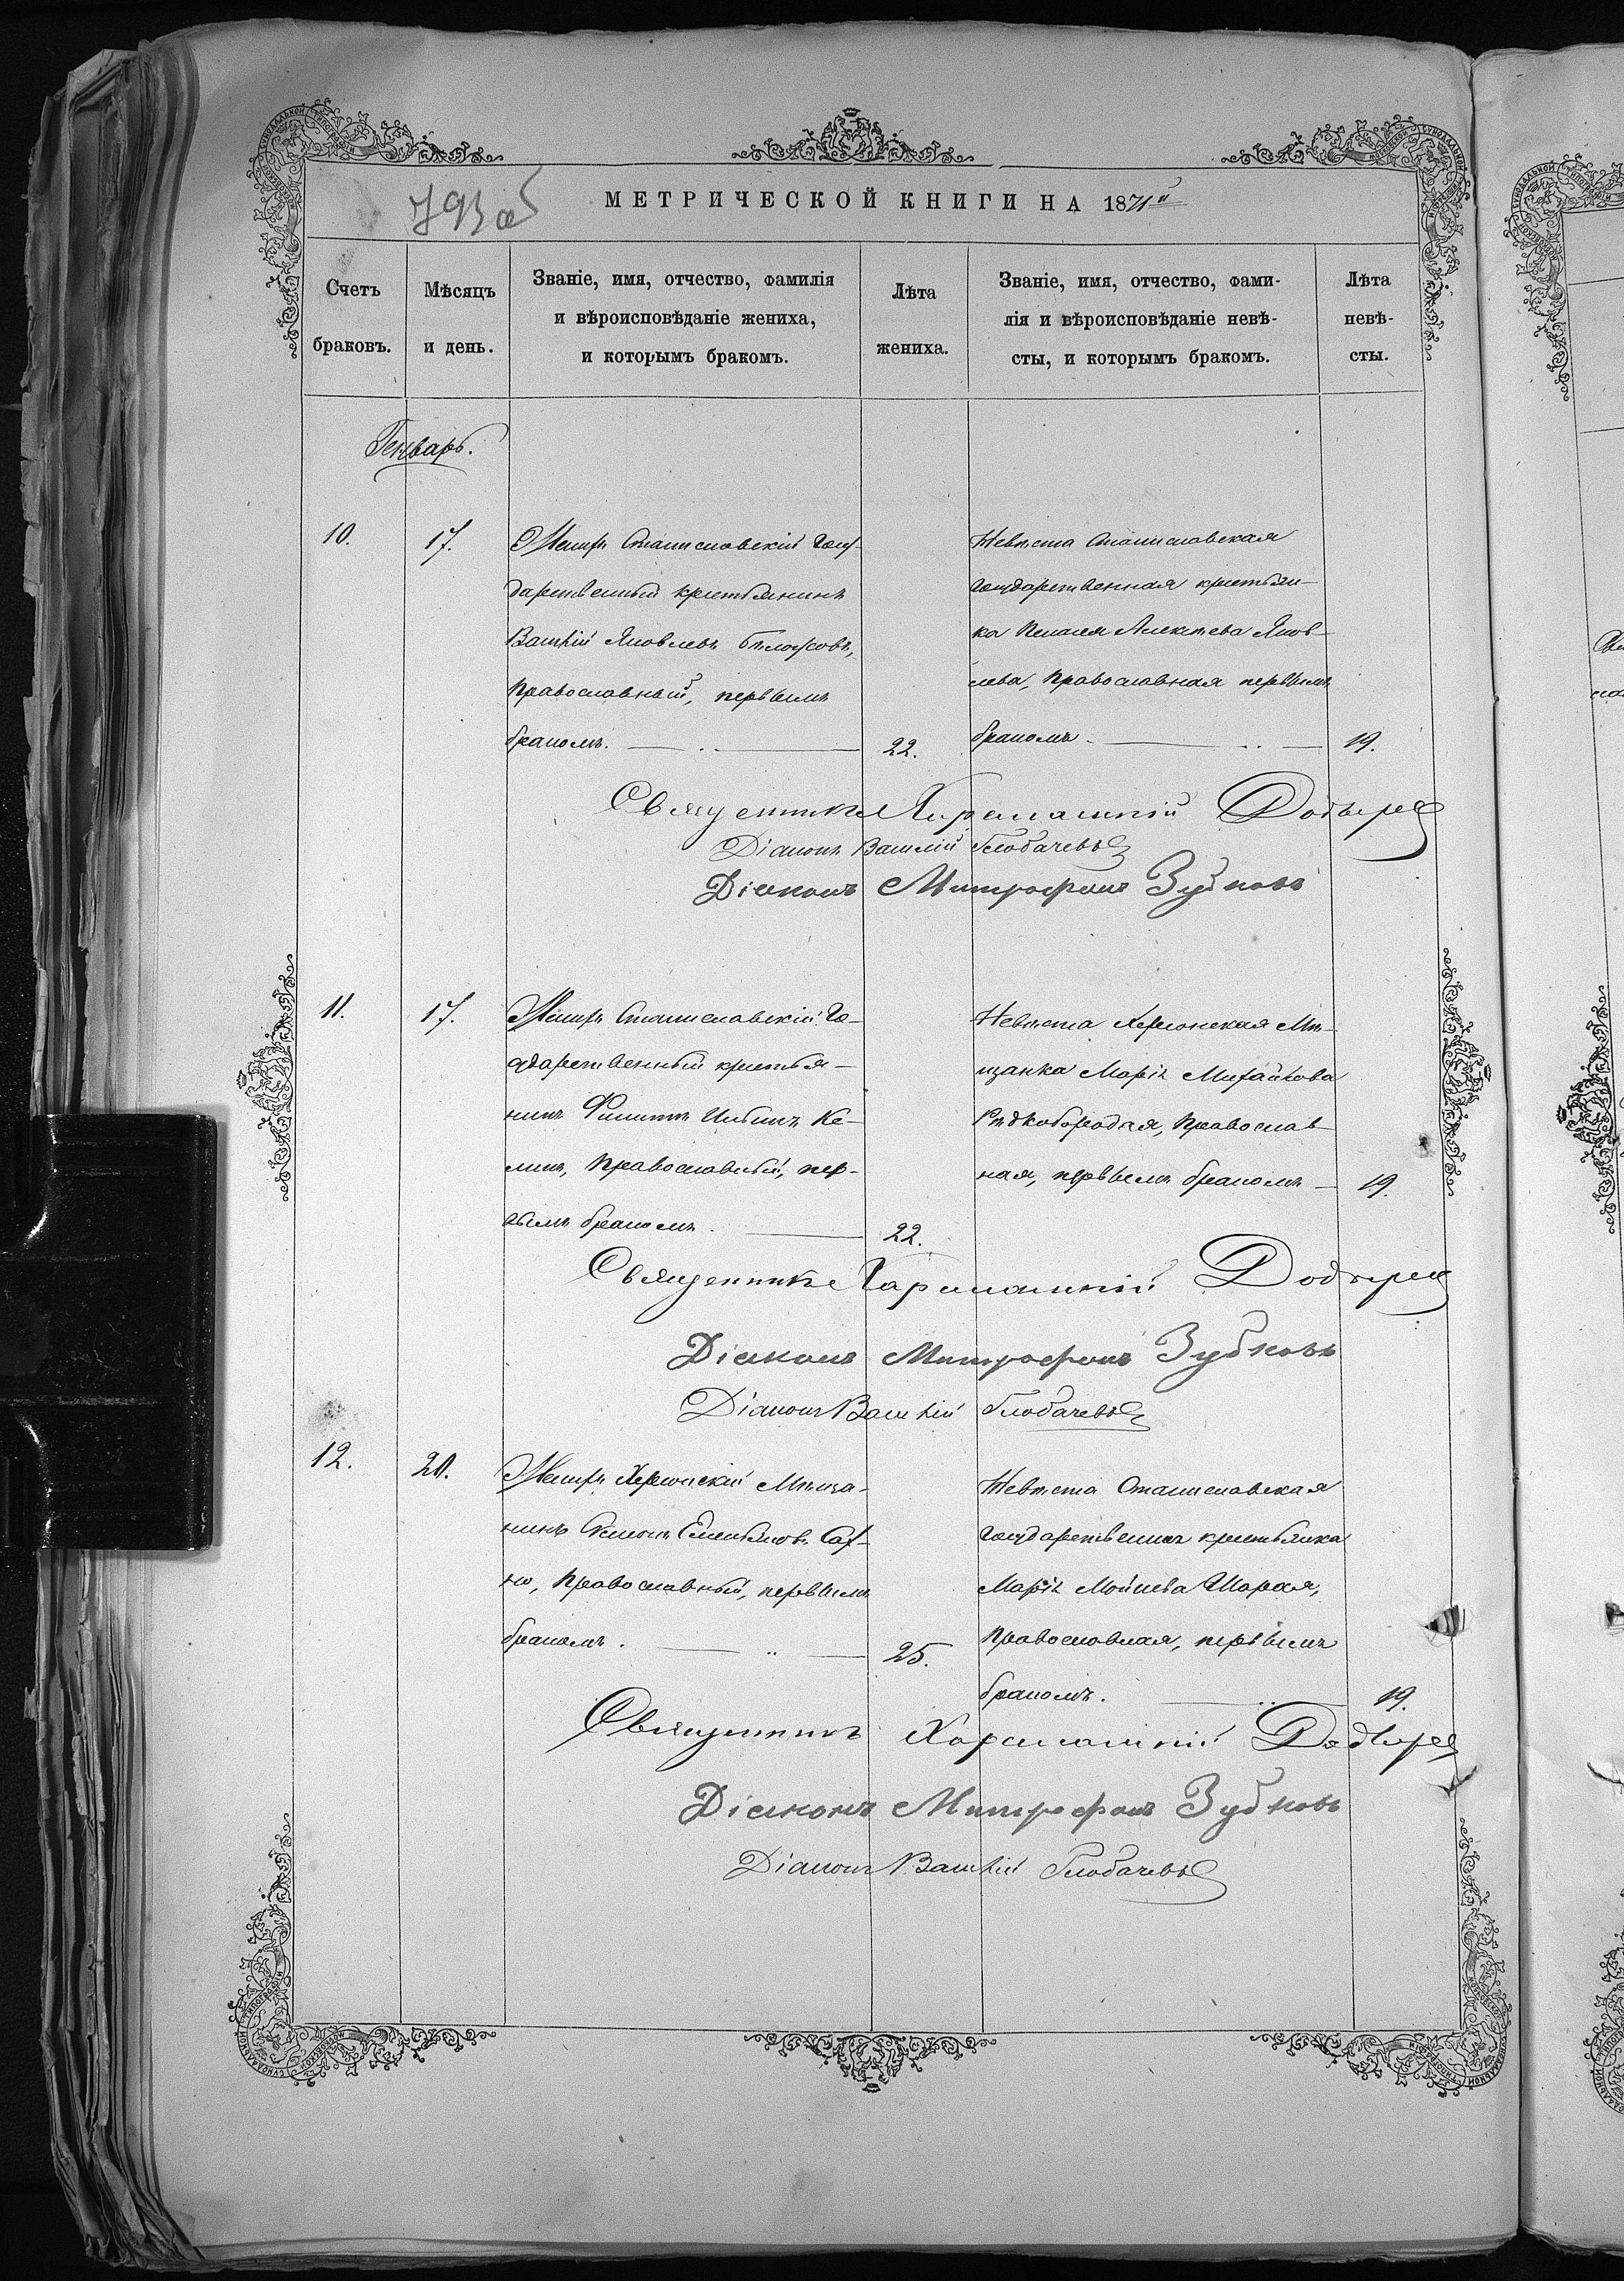 МЕТРИЧЕСКОЙ КНИГИ НА 1871й
793 об
Счетъ браковъ.
Мѣсяцъ и день.
Званіе, имя, отчество, фамилія
и вѣроисповѣданіе жениха,
и которымъ бракомъ.
Лѣта
жениха.
Званіе, имя, отчество, фами-
лія и вѣроисповѣданіе невѣ-
сты, и которымъ бракомъ.
Лѣта
невѣ-
сты.
Генварь.
10.
17.
Женихъ Станиславскій Госу-
дарственный крестьянинъ
Василій Яковлевъ Бѣлоусовъ,
Православный, первымъ
бракомъ.
22.
Невѣста Станиславская
Государственная крестьян-
ка Пелагея Алексѣева Яков-
лева, Православная первымъ
бракомъ.
19.
Священникъ Харлампій
Діаконъ Василій Глобачевъ
Діаконъ Митрофанъ Зубковъ
11.
17.
Женихъ Станиславскій Го-
сударственный крестья-
нинъ Филиппъ Ке-
линъ, Православный, пер-
вымъ бракомъ.
22.
Невѣста Херсонская Мѣ-
щанка Марія Михайлова
Рѣдкобородая, Православ-
ная, первымъ бракомъ
19.
Священникъ Харлампій
Діаконъ Митрофанъ Зубковъ
Діаконъ Василій Глобачевъ
12.
20.
Женихъ Херсонскій Мѣща-
нинъ Емельяновъ Сах-
но, Православный, первымъ
бракомъ.
25.
Невѣста Станиславская
Государственная крестьянка
Марія Мойсеева Шарая,
Православная, первымъ
бракомъ.
19.
Священникъ Харлампій
Діаконъ Митрофанъ Зубковъ
Діаконъ Василій Глобачевъ